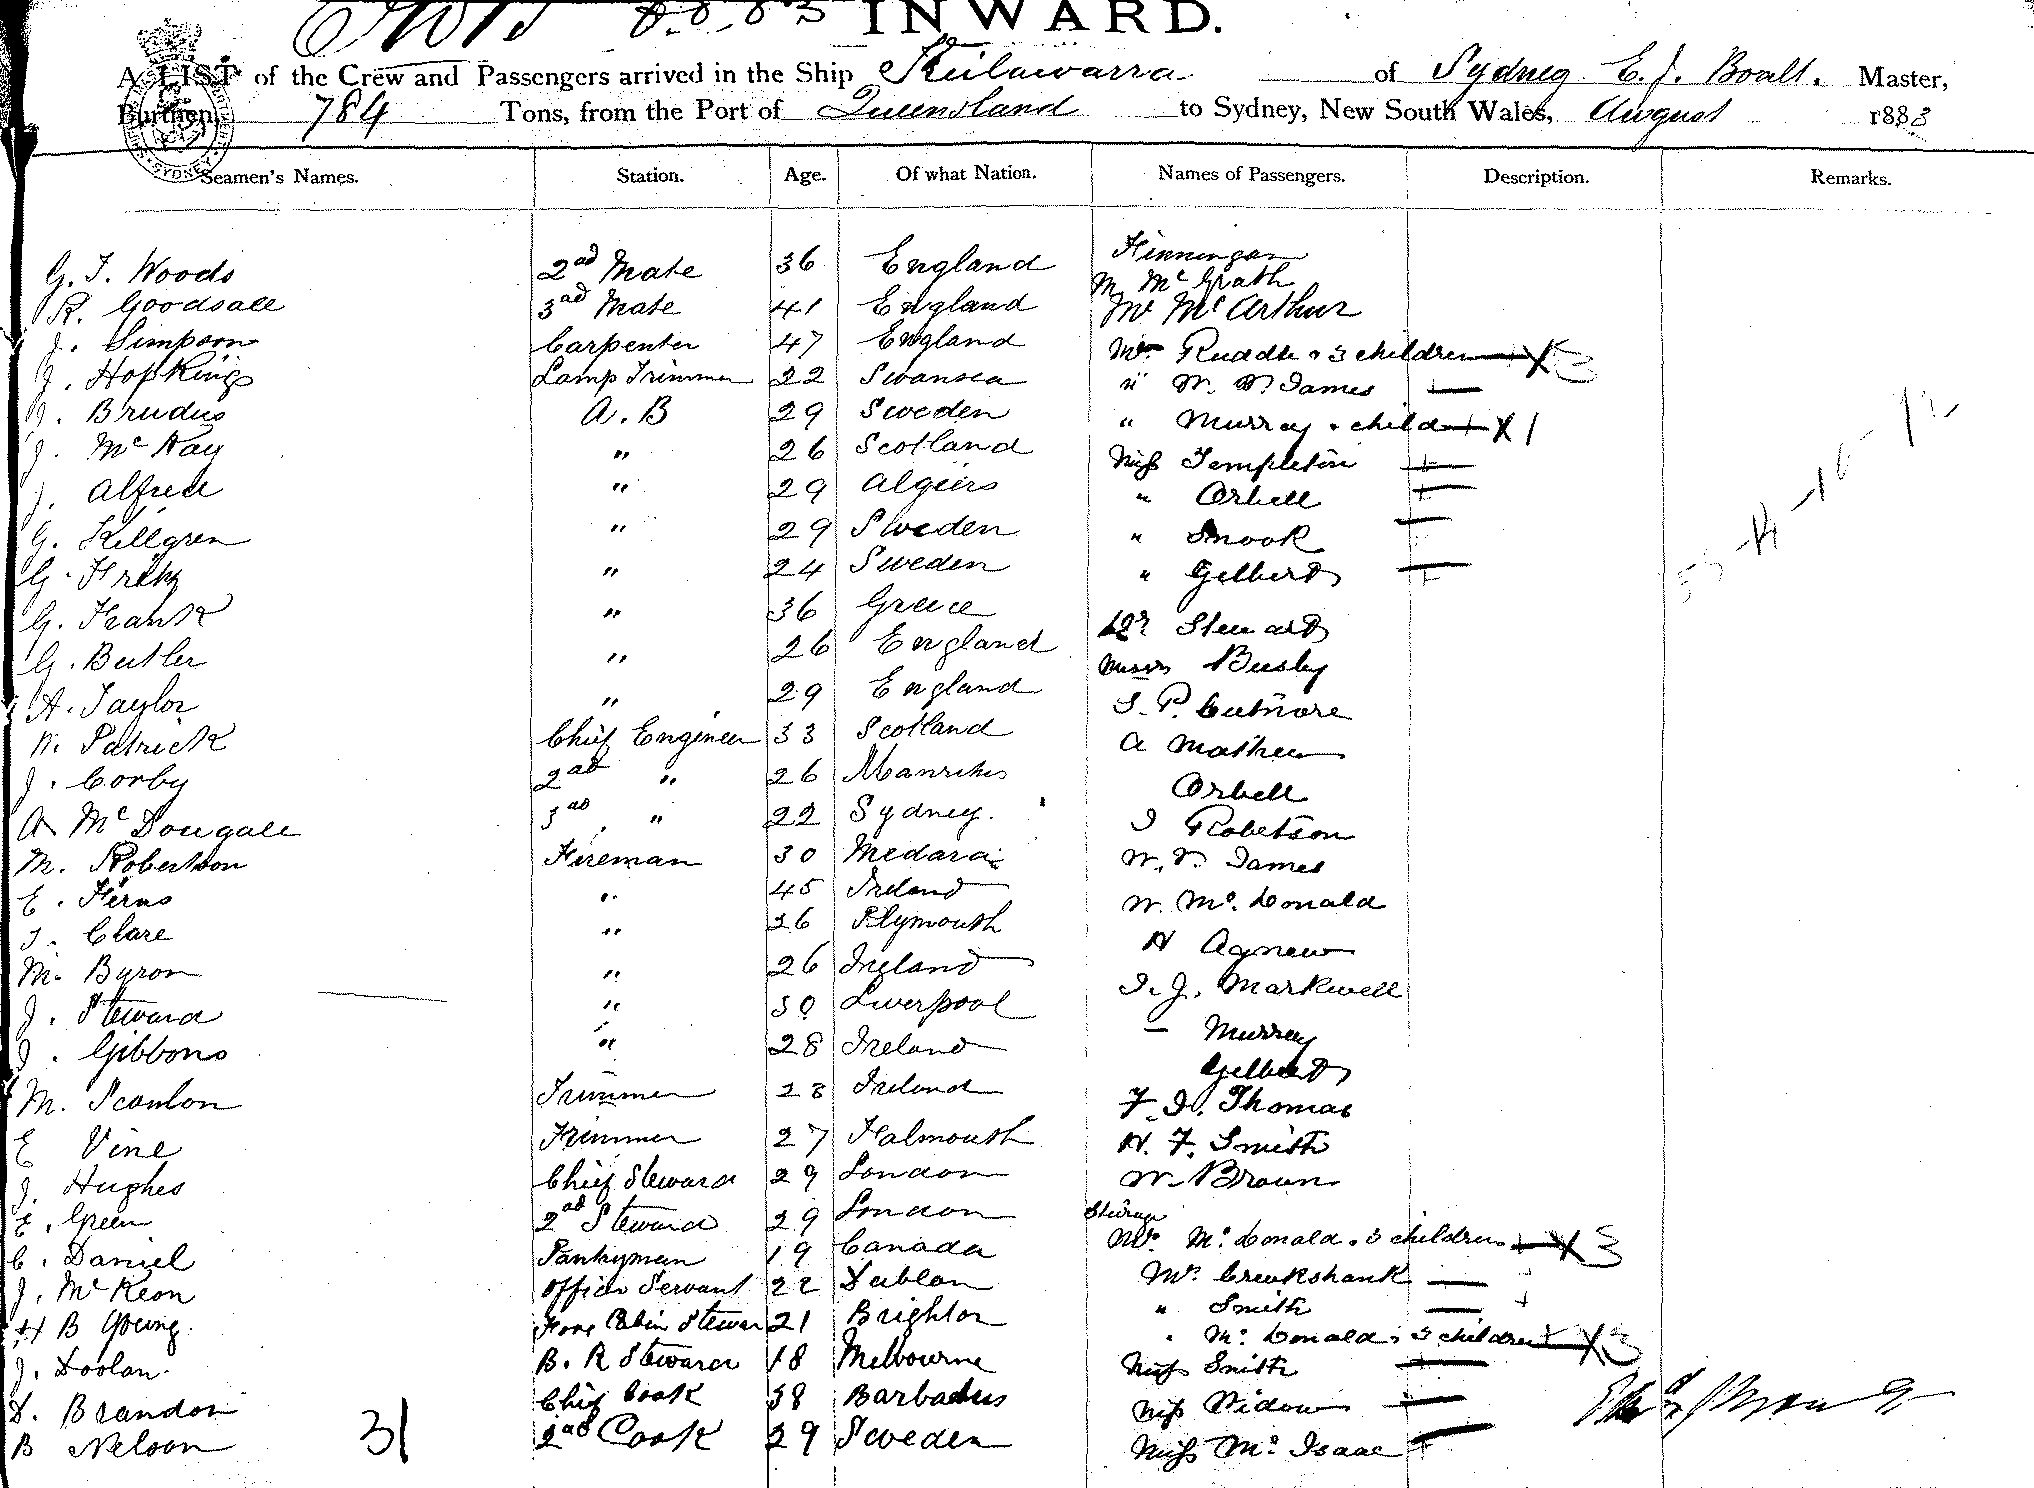 INWARD.
A LIST of the Crew and Passengers arrived in the Ship Keilawarra of Sydney E. J. Boult. Master,
Burthen 784 Tons, from the Port of Queensland to Sydney, New South Wales, August 1883
Seamen's Names. Station. Age. Of what Nation. Names of Passengers. Description. Remarks.
G. T. Woods 2nd Mate 36 England Finningan
M McGrath
R. Goodsall 3rd Mate 41 England Mr McArthur
J. Simpson Carpenter 47 England Mrs Ruddle & 3 children X 3
J. Hopkings Lamp Trimmer 22 Swansea " W. W. James
J. Brudus A.B 29 Sweden " Murray & child X 1
J. McKay " 26 Scotland Miss Templeton
J. Alfred " 29 Algiers " Orbell
G. Killgren " 29 Sweden " Snook
G. Fritz " 24 Sweden " Gilbert
G. Frank " 36 Greece Dr Steward
G. Butler " 26 England Busby
A. Taylor " 29 England S. P. Cutmore
W. Patrick Chief Engineer 33 Scotland A Mathew
J. Corby 2nd " 26 Orbell
A McDougall 3rd " 22 Sydney. J Robetson
M. Robertson Fireman 30 Medara W. W. James
E. Ferns " 45 Ireland W. McDonald
J. Clare " 26 Plymouth H Agnew
M. Byron " 26 Ireland J. J. Markwell
J. Steward " 30 Liverpool — Murray
J. Gibbons " 28 Ireland Gilbert
M. Scanlon Trimmer 28 Ireland F. J. Thomas
E Vine Trimmer 27 Falmouth H. F. Smith
J. Hughes Chief Steward 29 London W. Brown
E. Green 2nd Steward 29 London Steerage
C. Daniel Pantryman 19 Canada Mrs. McDonald & 3 children X 3
J. McKeon Officer Servant 22 Dublon Mrs. Creukshank
H B Young. Fore Cabin Stewar 21 Brighton " Smith
J. Doolan. B. R Steward 18 Melbourne " McDonald & 3 children X 3
Miss Smith
D. Brandon Chief Cook 38 Barbadus Miss Widow
B Nelson 31 2nd Cook 29 Sweden Miss McIsaac